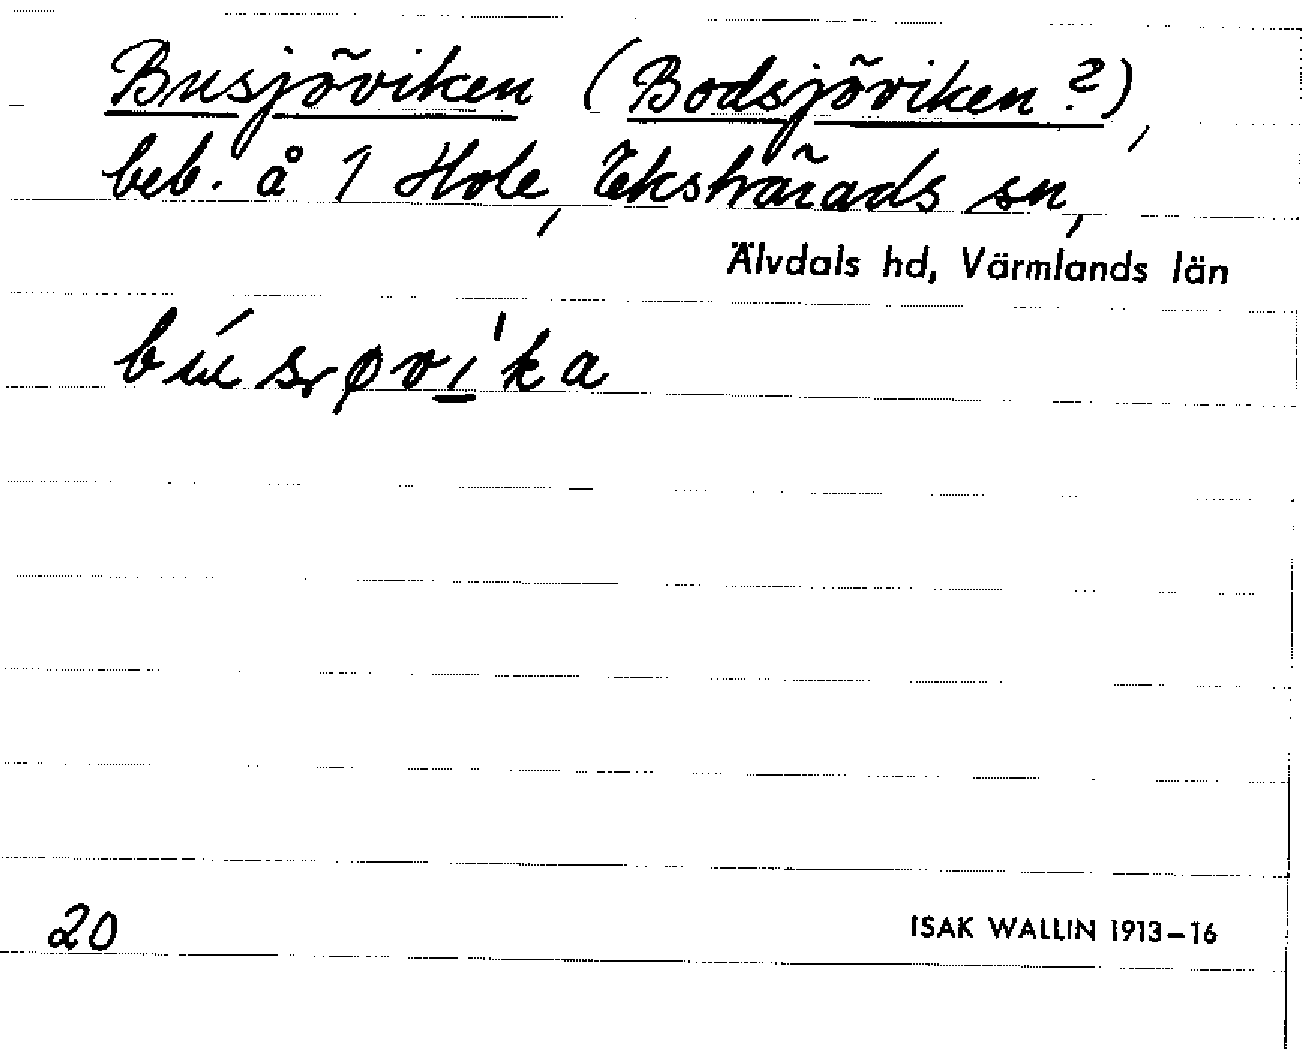 Busjöviken (Bodsjöviken?),
beb. å 1 Hole, Ekshärads sn,
Älvdals hd, Värmlands län
20
ISAK WALLIN 1913–16